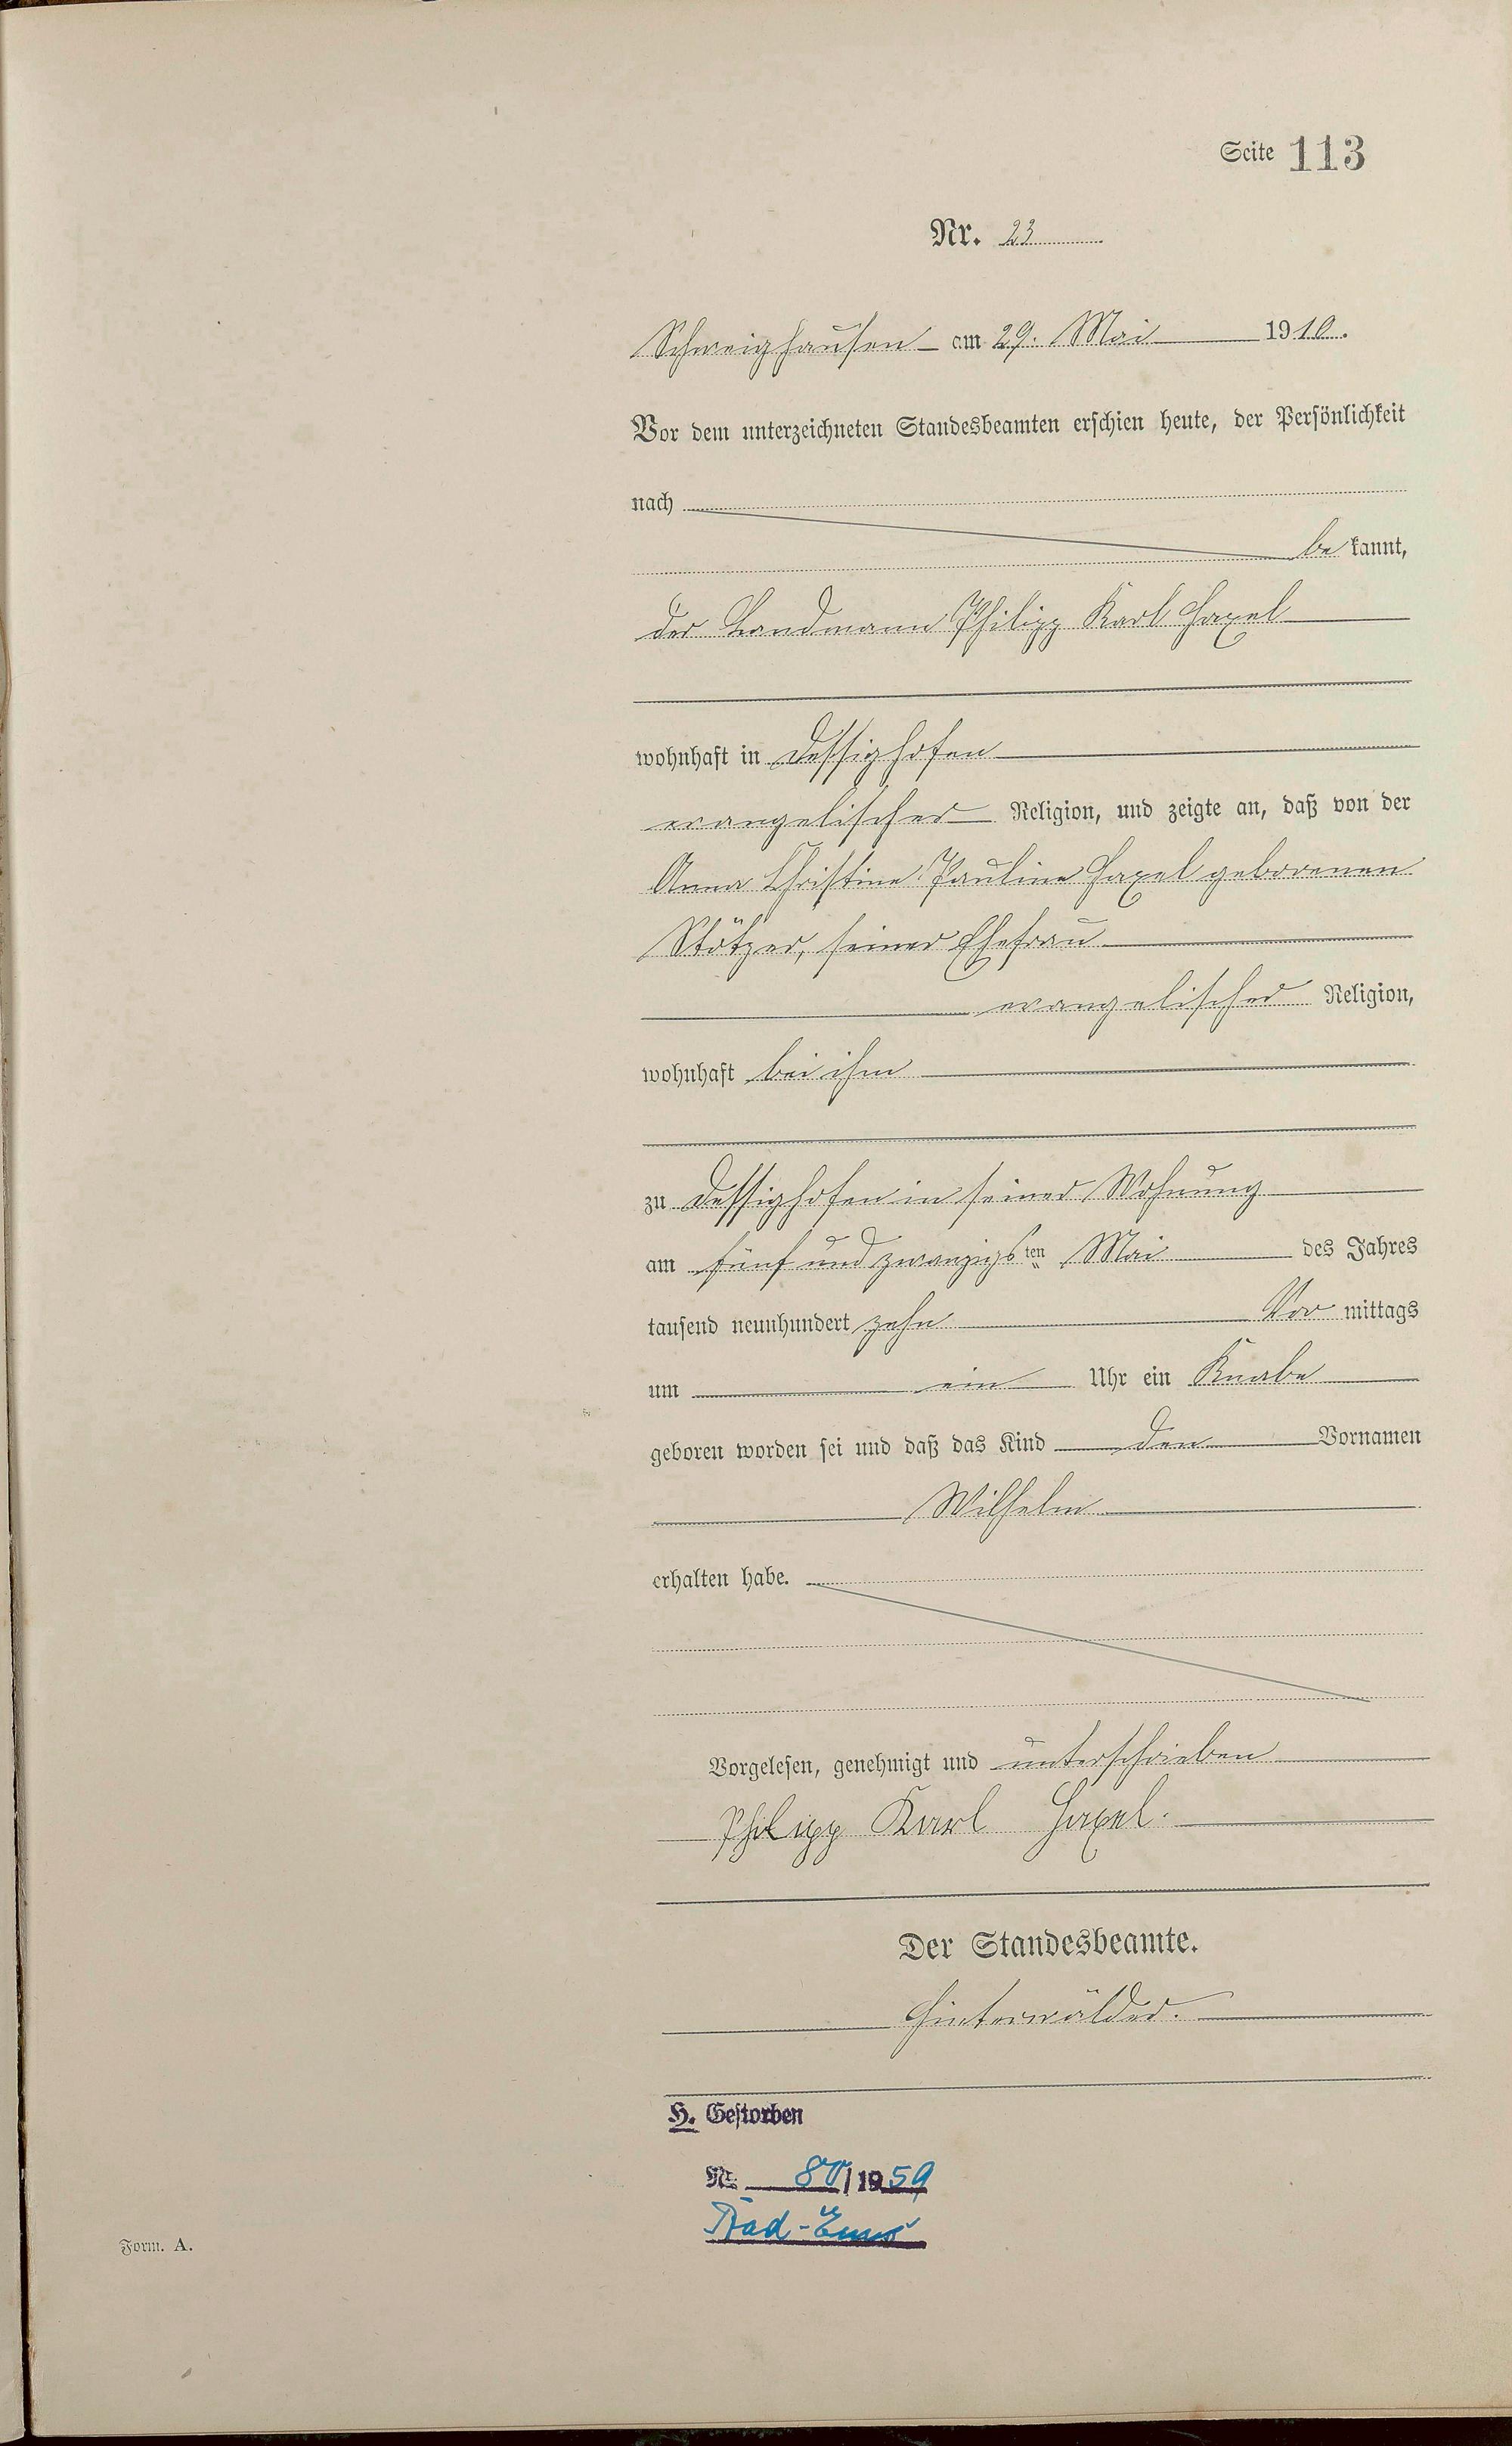 Seite 113
Nr. 23
Schweighausen am 29. Mai 1910.
Vor dem unterzeichneten Standesbeamten erschien heute, der Persönlichkeit
nach
be kannt,
der Landmann Philipp Karl Haxel
wohnhaft in Dessighofen
evangelischer Religion, und zeigte an, daß von der
Anna Christine Pauline Haxel geborenen
Stötzer, seiner Ehefrau
evangelischer Religion,
wohnhaft bei ihm
zu Dessighofen in seiner Wohnung
am fünf und zwanzigsten Mai des Jahres
tausend neunhundert zehn Vor mittags
um ein Uhr ein Knabe
geboren worden sei und daß das Kind den Vornamen
Wilhelm
erhalten habe.
Vorgelesen, genehmigt und unterschrieben
Philipp Karl Haxel.
Der Standesbeamte.
Hinterwälder.
H. Gestorben
Nr. 80/1959
Bad-Ems
Form. A.